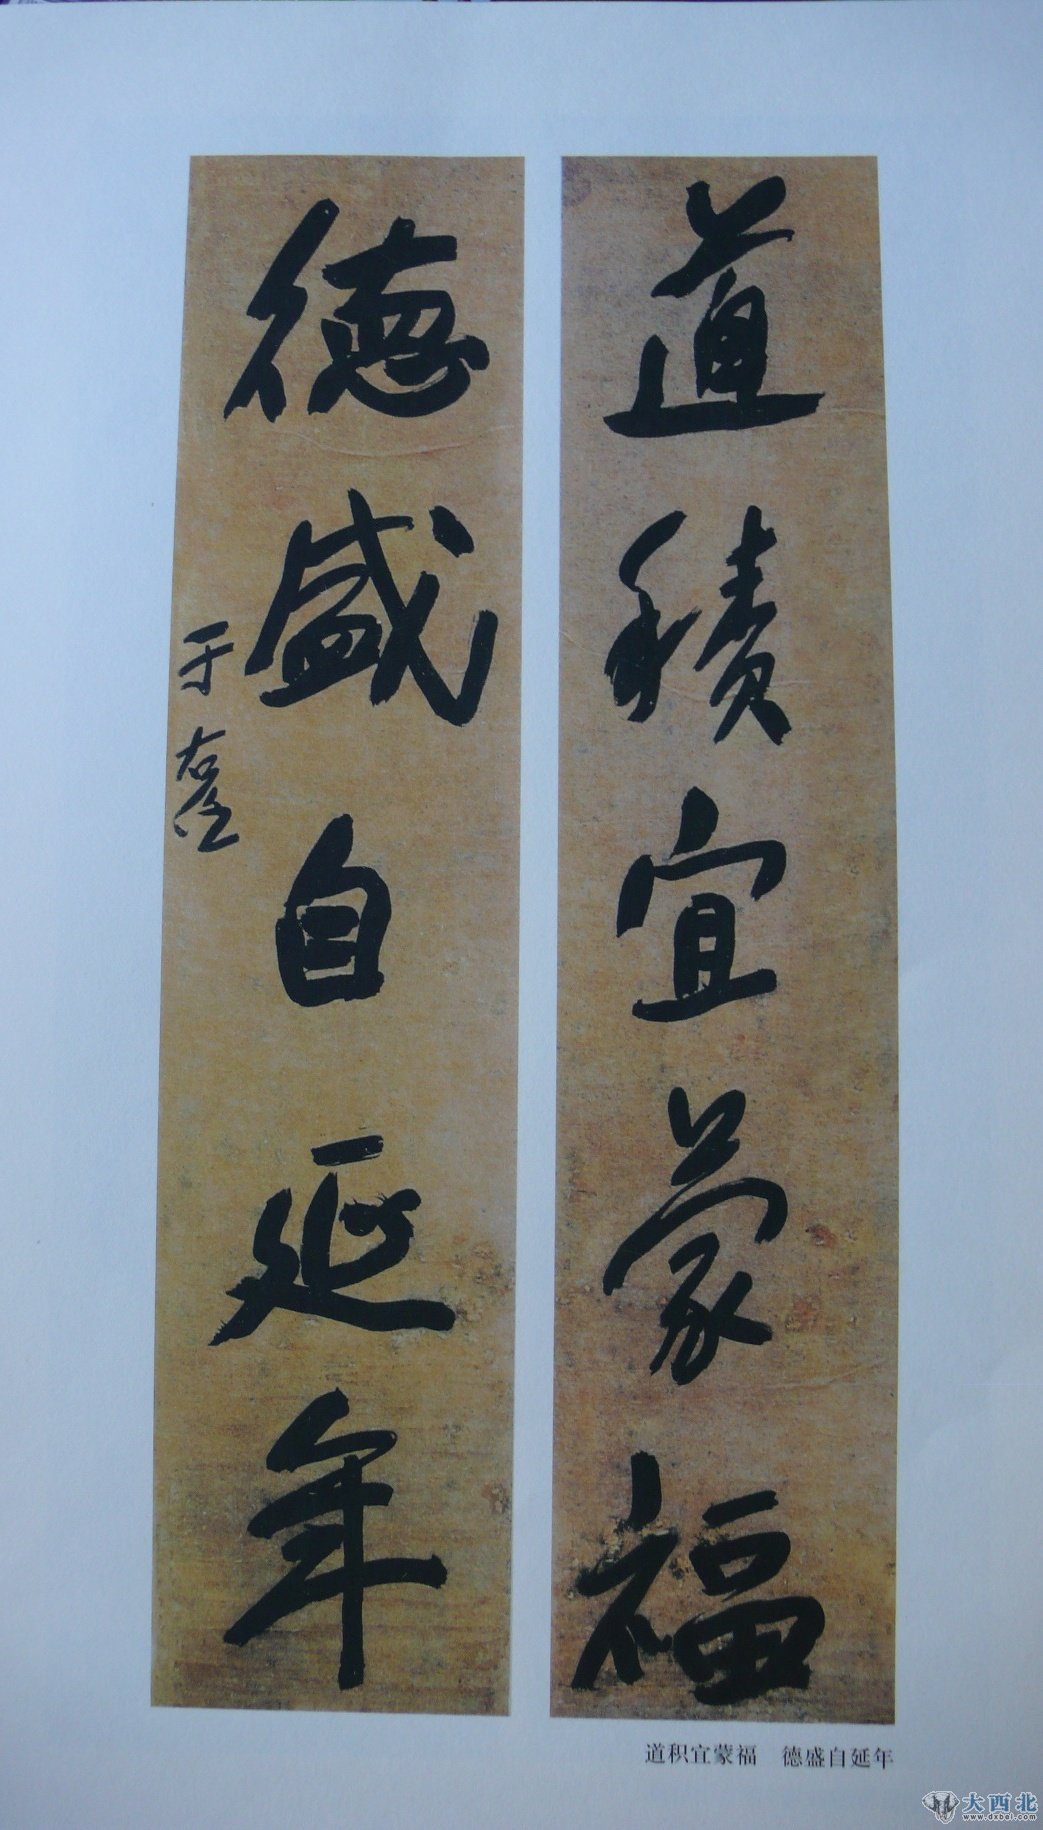 道積宜蒙福
德盛自延年
于右任
道积宜蒙福 德盛自延年
大西北
www.dxbei.com